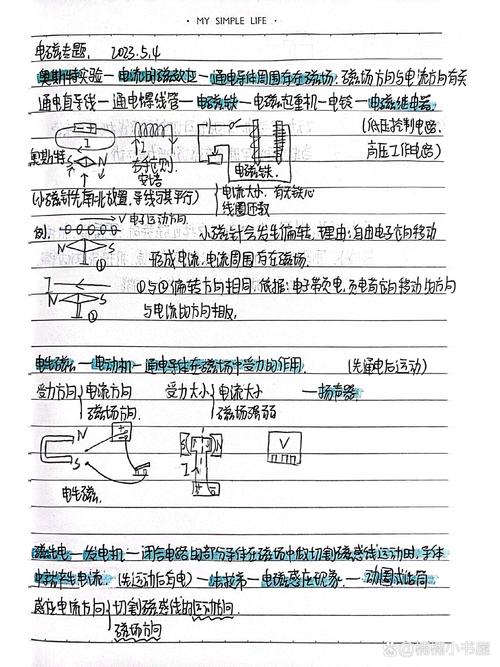 · MY SIMPLE LIFE ·
电磁专题. 2023.5.4
奥斯特实验—电流的磁效应—通电导体周围存在磁场. 磁场方向与电流方向有关
通电直导线—通电螺线管—电磁铁—电磁起重机—电铃—电磁继电器
(低压控制电路.
高压工作电路)
I
奥斯特 S N
I
右手定则
安培
电磁铁.
(小磁针先南北放置,导线与其平行)
电流大小. 有无铁心
线圈匝数
V 电子运动方向.
例.
N S
①
小磁针会发生偏转. 理由:自由电子定向移动
形成电流,电流周围存在磁场.
I
N S
①
①与①偏转方向相同. 依据:电子带负电,负电荷的移动的方向
与电流的方向相反.
电生磁.—电动机—通电导体在磁场中受力的作用. (先通电后运动)
受力方向 电流方向
磁场方向.
受力大小 电流大小
磁场强弱
—扬声器
N
S
S N
I
V
电生磁.
磁生电—发电机—闭合电路的部分导体在磁场中做切割磁感线运动时,导体
中就产生电流. (先运动后有电)—法拉第—电磁感应现象.—动圈式话筒
感应电流方向 切割磁感线的运动方向.
磁场方向
橘橘小书屋